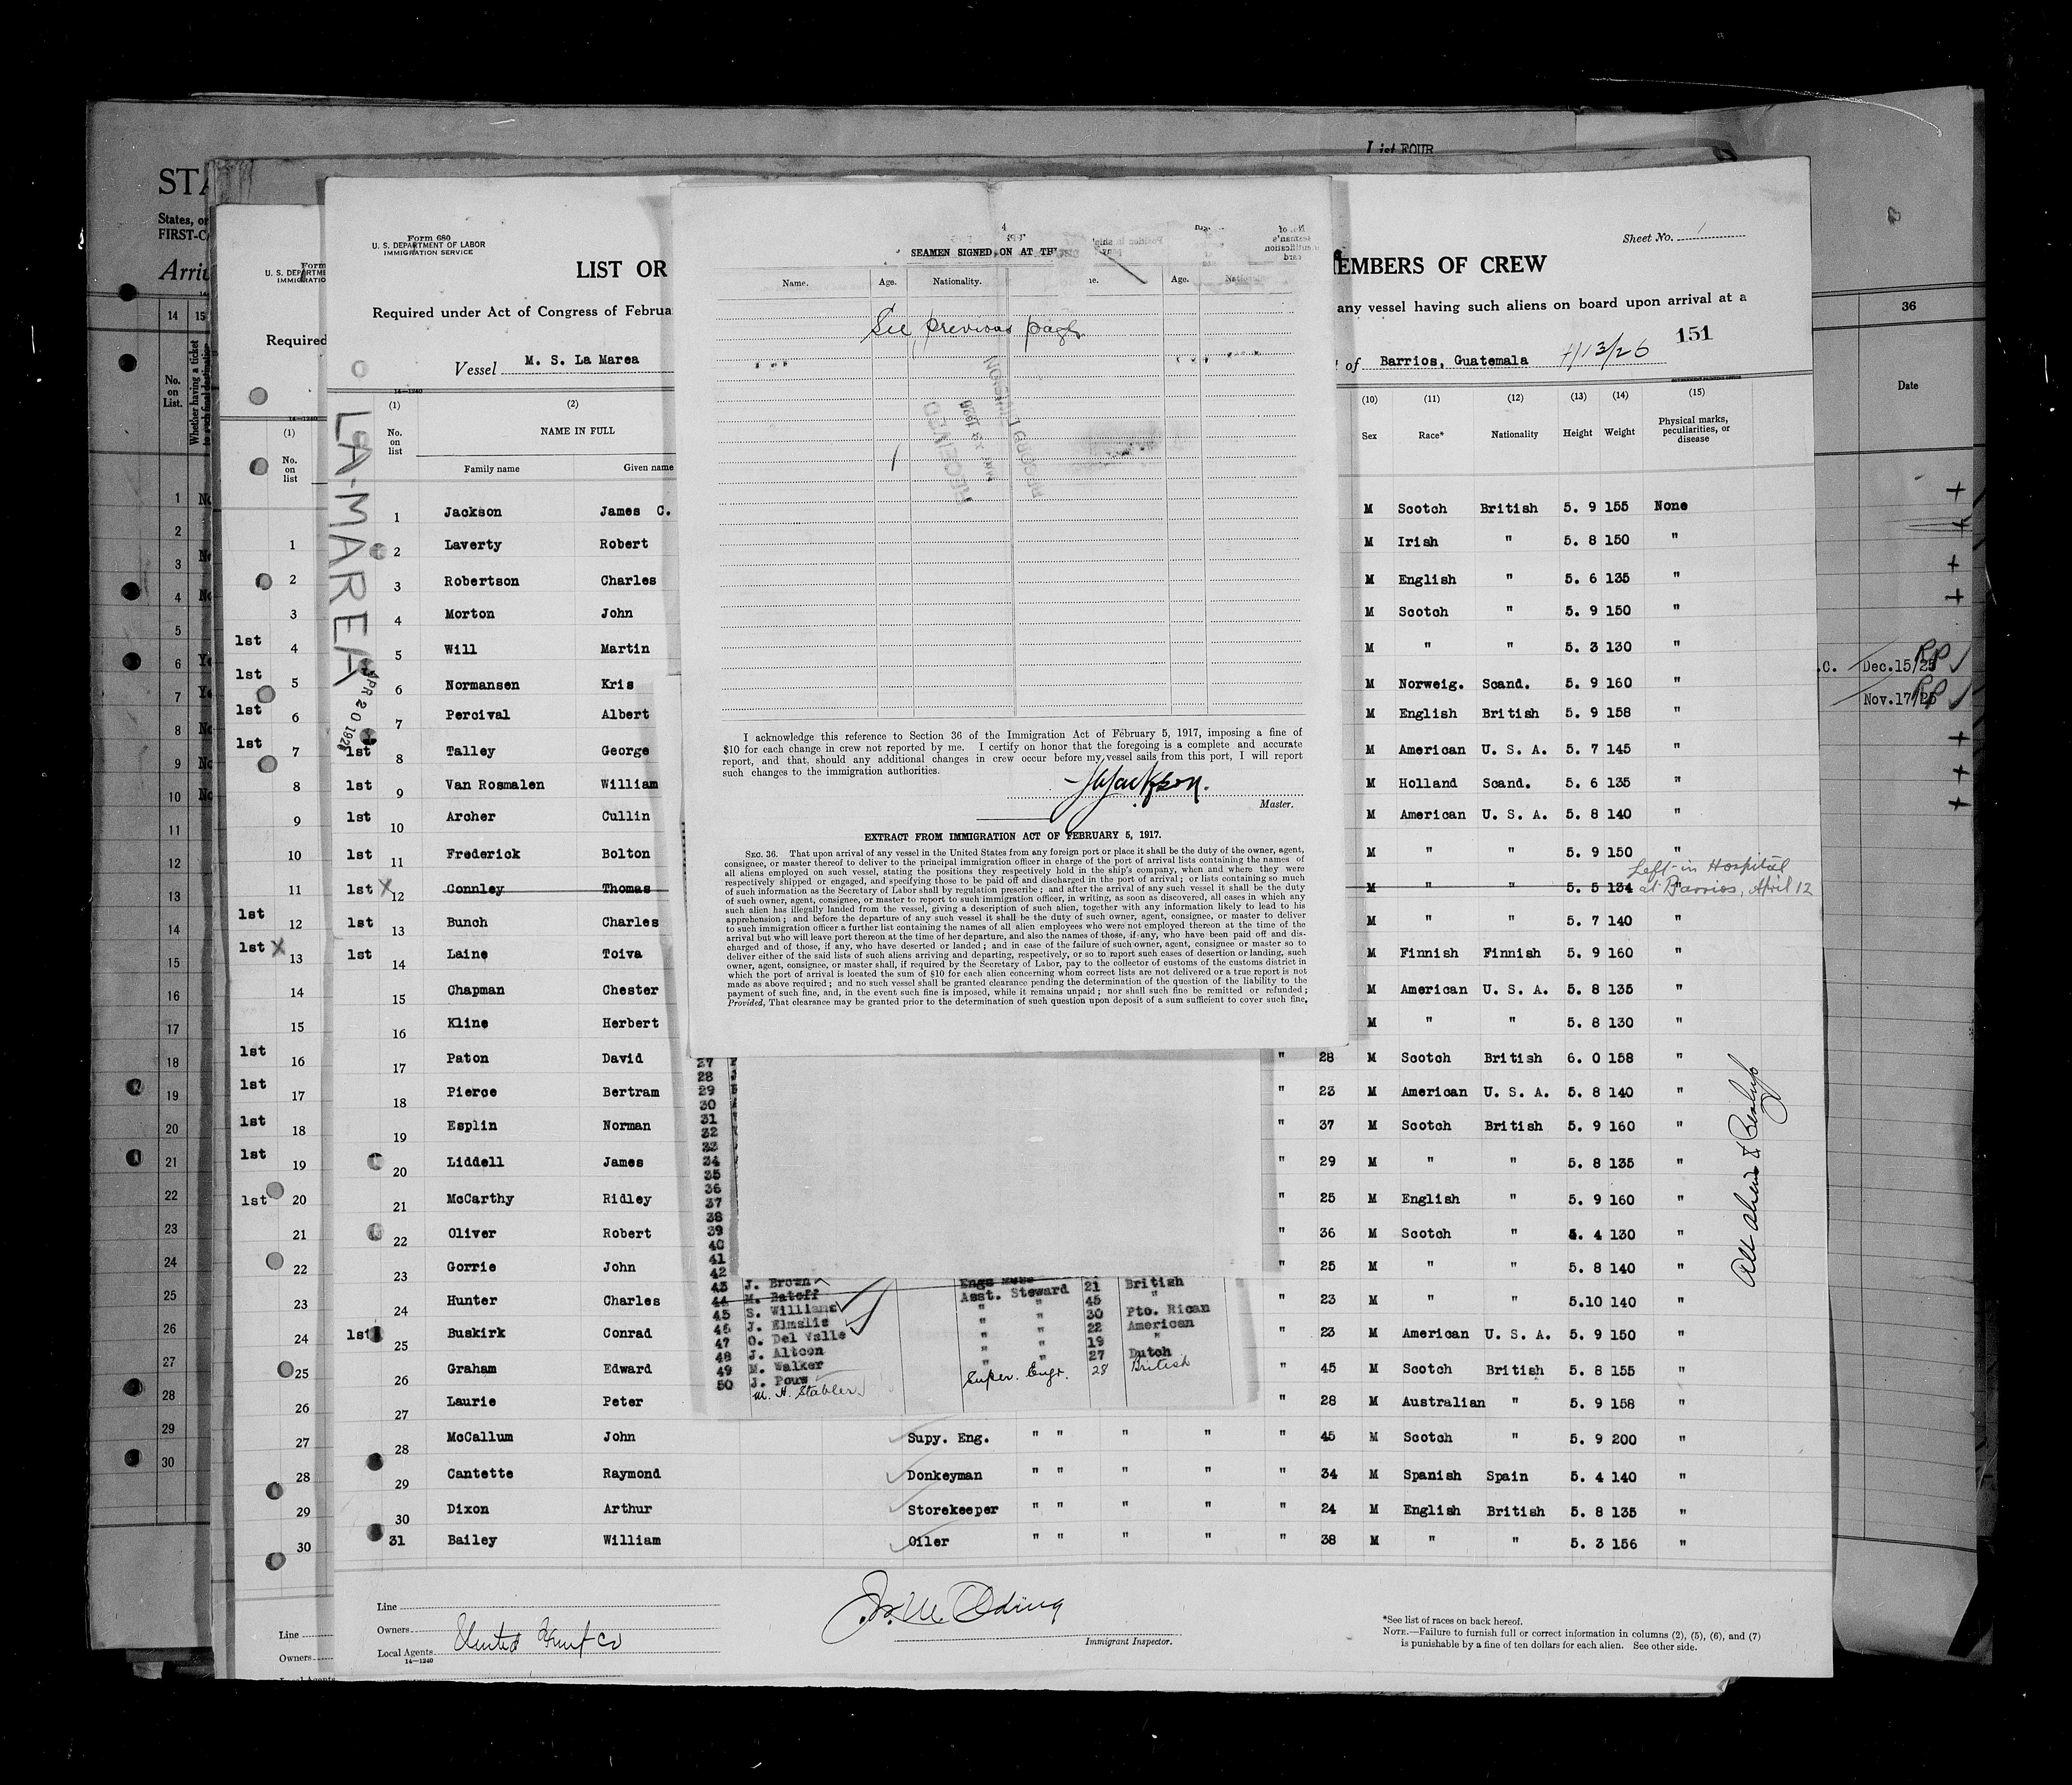 List FOUR
STA
States, or
FIRST-C
Form 680
U. S. DEPARTMENT OF LABOR
IMMIGRATION SERVICE
LIST OR
EMBERS OF CREW
Sheet No. 1
Required under Act of Congress of Februa
any vessel having such aliens on board upon arrival at a
151
Vessel M. S. La Marea
of Barrios, Guatemala 4/13/26
LA-MAREA
APR 20 1926
(1) (2) (10) (11) (12) (13) (14) (15)
No. on list NAME IN FULL Sex Race* Nationality Height Weight Physical marks, peculiarities, or disease
Family name Given name
1 Jackson James C. M Scotch British 5. 9 155 None
2 Laverty Robert M Irish " 5. 8 150 "
3 Robertson Charles M English " 5. 6 135 "
4 Morton John M Scotch " 5. 9 150 "
5 Will Martin M " " 5. 3 130 "
6 Normansen Kris M Norweig. Scand. 5. 9 160 "
7 Percival Albert M English British 5. 9 158 "
1st 8 Talley George M American U. S. A. 5. 7 145 "
1st 9 Van Rosmalen William M Holland Scand. 5. 6 135 "
1st 10 Archer Cullin M American U. S. A. 5. 8 140 "
1st 11 Frederick Bolton M " " 5. 9 150 "
1st X 12 Connley Thomas M " " 5. 5 134 " Left in Hospital
at Barrios, April 12
1st 13 Bunch Charles M " " 5. 7 140 "
1st 14 Laine Toiva M Finnish Finnish 5. 9 160 "
15 Chapman Chester M American U. S. A. 5. 8 135 "
16 Kline Herbert M " " 5. 8 130 "
17 Paton David " 28 M Scotch British 6. 0 158 "
18 Pierce Bertram " 23 M American U. S. A. 5. 8 140 "
19 Esplin Norman " 37 M Scotch British 5. 9 160 "
20 Liddell James " 29 M " " 5. 8 135 "
21 McCarthy Ridley " 25 M English " 5. 9 160 "
22 Oliver Robert " 36 M Scotch " 5. 4 130 "
23 Gorrie John " 25 M " " 5. 8 140 "
24 Hunter Charles " 23 M " " 5.10 140 "
1st 25 Buskirk Conrad " 23 M American U. S. A. 5. 9 150 "
26 Graham Edward " 45 M Scotch British 5. 8 155 "
27 Laurie Peter " 28 M Australian " 5. 9 158 "
28 McCallum John Supy. Eng. " " " " " 45 M Scotch " 5. 9 200 "
29 Cantette Raymond Donkeyman " " " " " 34 M Spanish Spain 5. 4 140 "
30 Dixon Arthur Storekeeper " " " " " 24 M English British 5. 8 135 "
31 Bailey William Oiler " " " " " 38 M " " 5. 3 156 "
Line
Owners
Local Agents United Fruit Co
14—1240
Immigrant Inspector.
*See list of races on back hereof.
NOTE.—Failure to furnish full or correct information in columns (2), (5), (6), and (7)
is punishable by a fine of ten dollars for each alien. See other side.
4
SEAMEN SIGNED ON AT TH
Name. Age. Nationality. Age.
See previous page
RECEIVED
I acknowledge this reference to Section 36 of the Immigration Act of February 5, 1917, imposing a fine of
$10 for each change in crew not reported by me. I certify on honor that the foregoing is a complete and accurate
report, and that, should any additional changes in crew occur before my vessel sails from this port, I will report
such changes to the immigration authorities.
Jackson.
Master.
EXTRACT FROM IMMIGRATION ACT OF FEBRUARY 5, 1917.
SEC. 36. That upon arrival of any vessel in the United States from any foreign port or place it shall be the duty of the owner, agent,
consignee, or master thereof to deliver to the principal immigration officer in charge of the port of arrival lists containing the names of
all aliens employed on such vessel, stating the positions they respectively hold in the ship's company, when and where they were
respectively shipped or engaged, and specifying those to be paid off and discharged in the port of arrival; or lists containing so much
of such information as the Secretary of Labor shall by regulation prescribe; and after the arrival of any such vessel it shall be the duty
of such owner, agent, consignee, or master to report to such immigration officer, in writing, as soon as discovered, all cases in which any
such alien has illegally landed from the vessel, giving a description of such alien, together with any information likely to lead to his
apprehension; and before the departure of any such vessel it shall be the duty of such owner, agent, consignee, or master to deliver
to such immigration officer a further list containing the names of all alien employees who were not employed thereon at the time of the
arrival but who will leave port thereon at the time of her departure, and also the names of those, if any, who have been paid off and dis-
charged and of those, if any, who have deserted or landed; and in case of the failure of such owner, agent, consignee or master so to
deliver either of the said lists of such aliens arriving and departing, respectively, or so to report such cases of desertion or landing, such
owner, agent, consignee, or master shall, if required by the Secretary of Labor, pay to the collector of customs of the customs district in
which the port of arrival is located the sum of $10 for each alien concerning whom correct lists are not delivered or a true report is not
made as above required; and no such vessel shall be granted clearance pending the determination of the question of the liability to the
payment of such fine, and, in the event such fine is imposed, while it remains unpaid; nor shall such fine be remitted or refunded;
Provided, That clearance may be granted prior to the determination of such question upon deposit of a sum sufficient to cover such fine,
43 J. Brown Engs Mess 21 British
44 M. Batoff Asst. Steward 45 "
45 S. Williams " " 30 Pto. Rican
46 J. Elmslie " " 22 American
47 O. Del Valle " " 19 "
48 J. Altoon " " 27 Dutch
49 M. Walker Super. Engr. 28 British
50 J. Pous
M. H. Stabler
36
Date
Dec.15/25
Nov.17/25